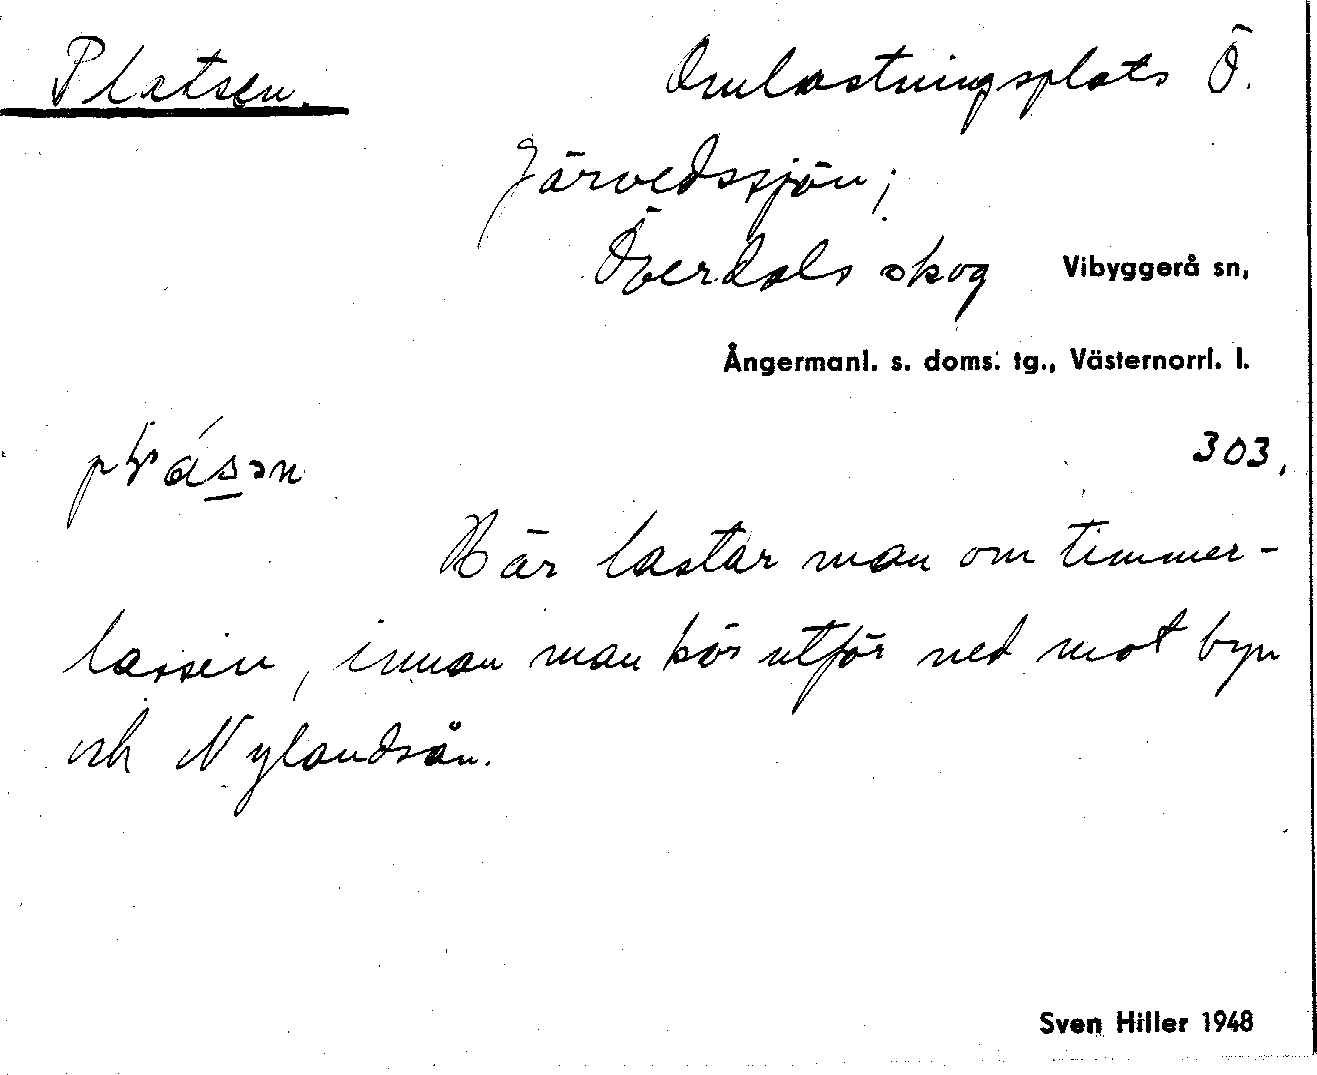 Platsen. Omlastningsplats Ö.
Järvedssjön;
Överdals skog Vibyggerå sn,
Ångermanl. s. doms. tg., Västernorrl. l.
303.
Här lastar man om timmer-
lassen, innan man kör utför ned mot byn
och Nylandsån.
Sven Hiller 1948